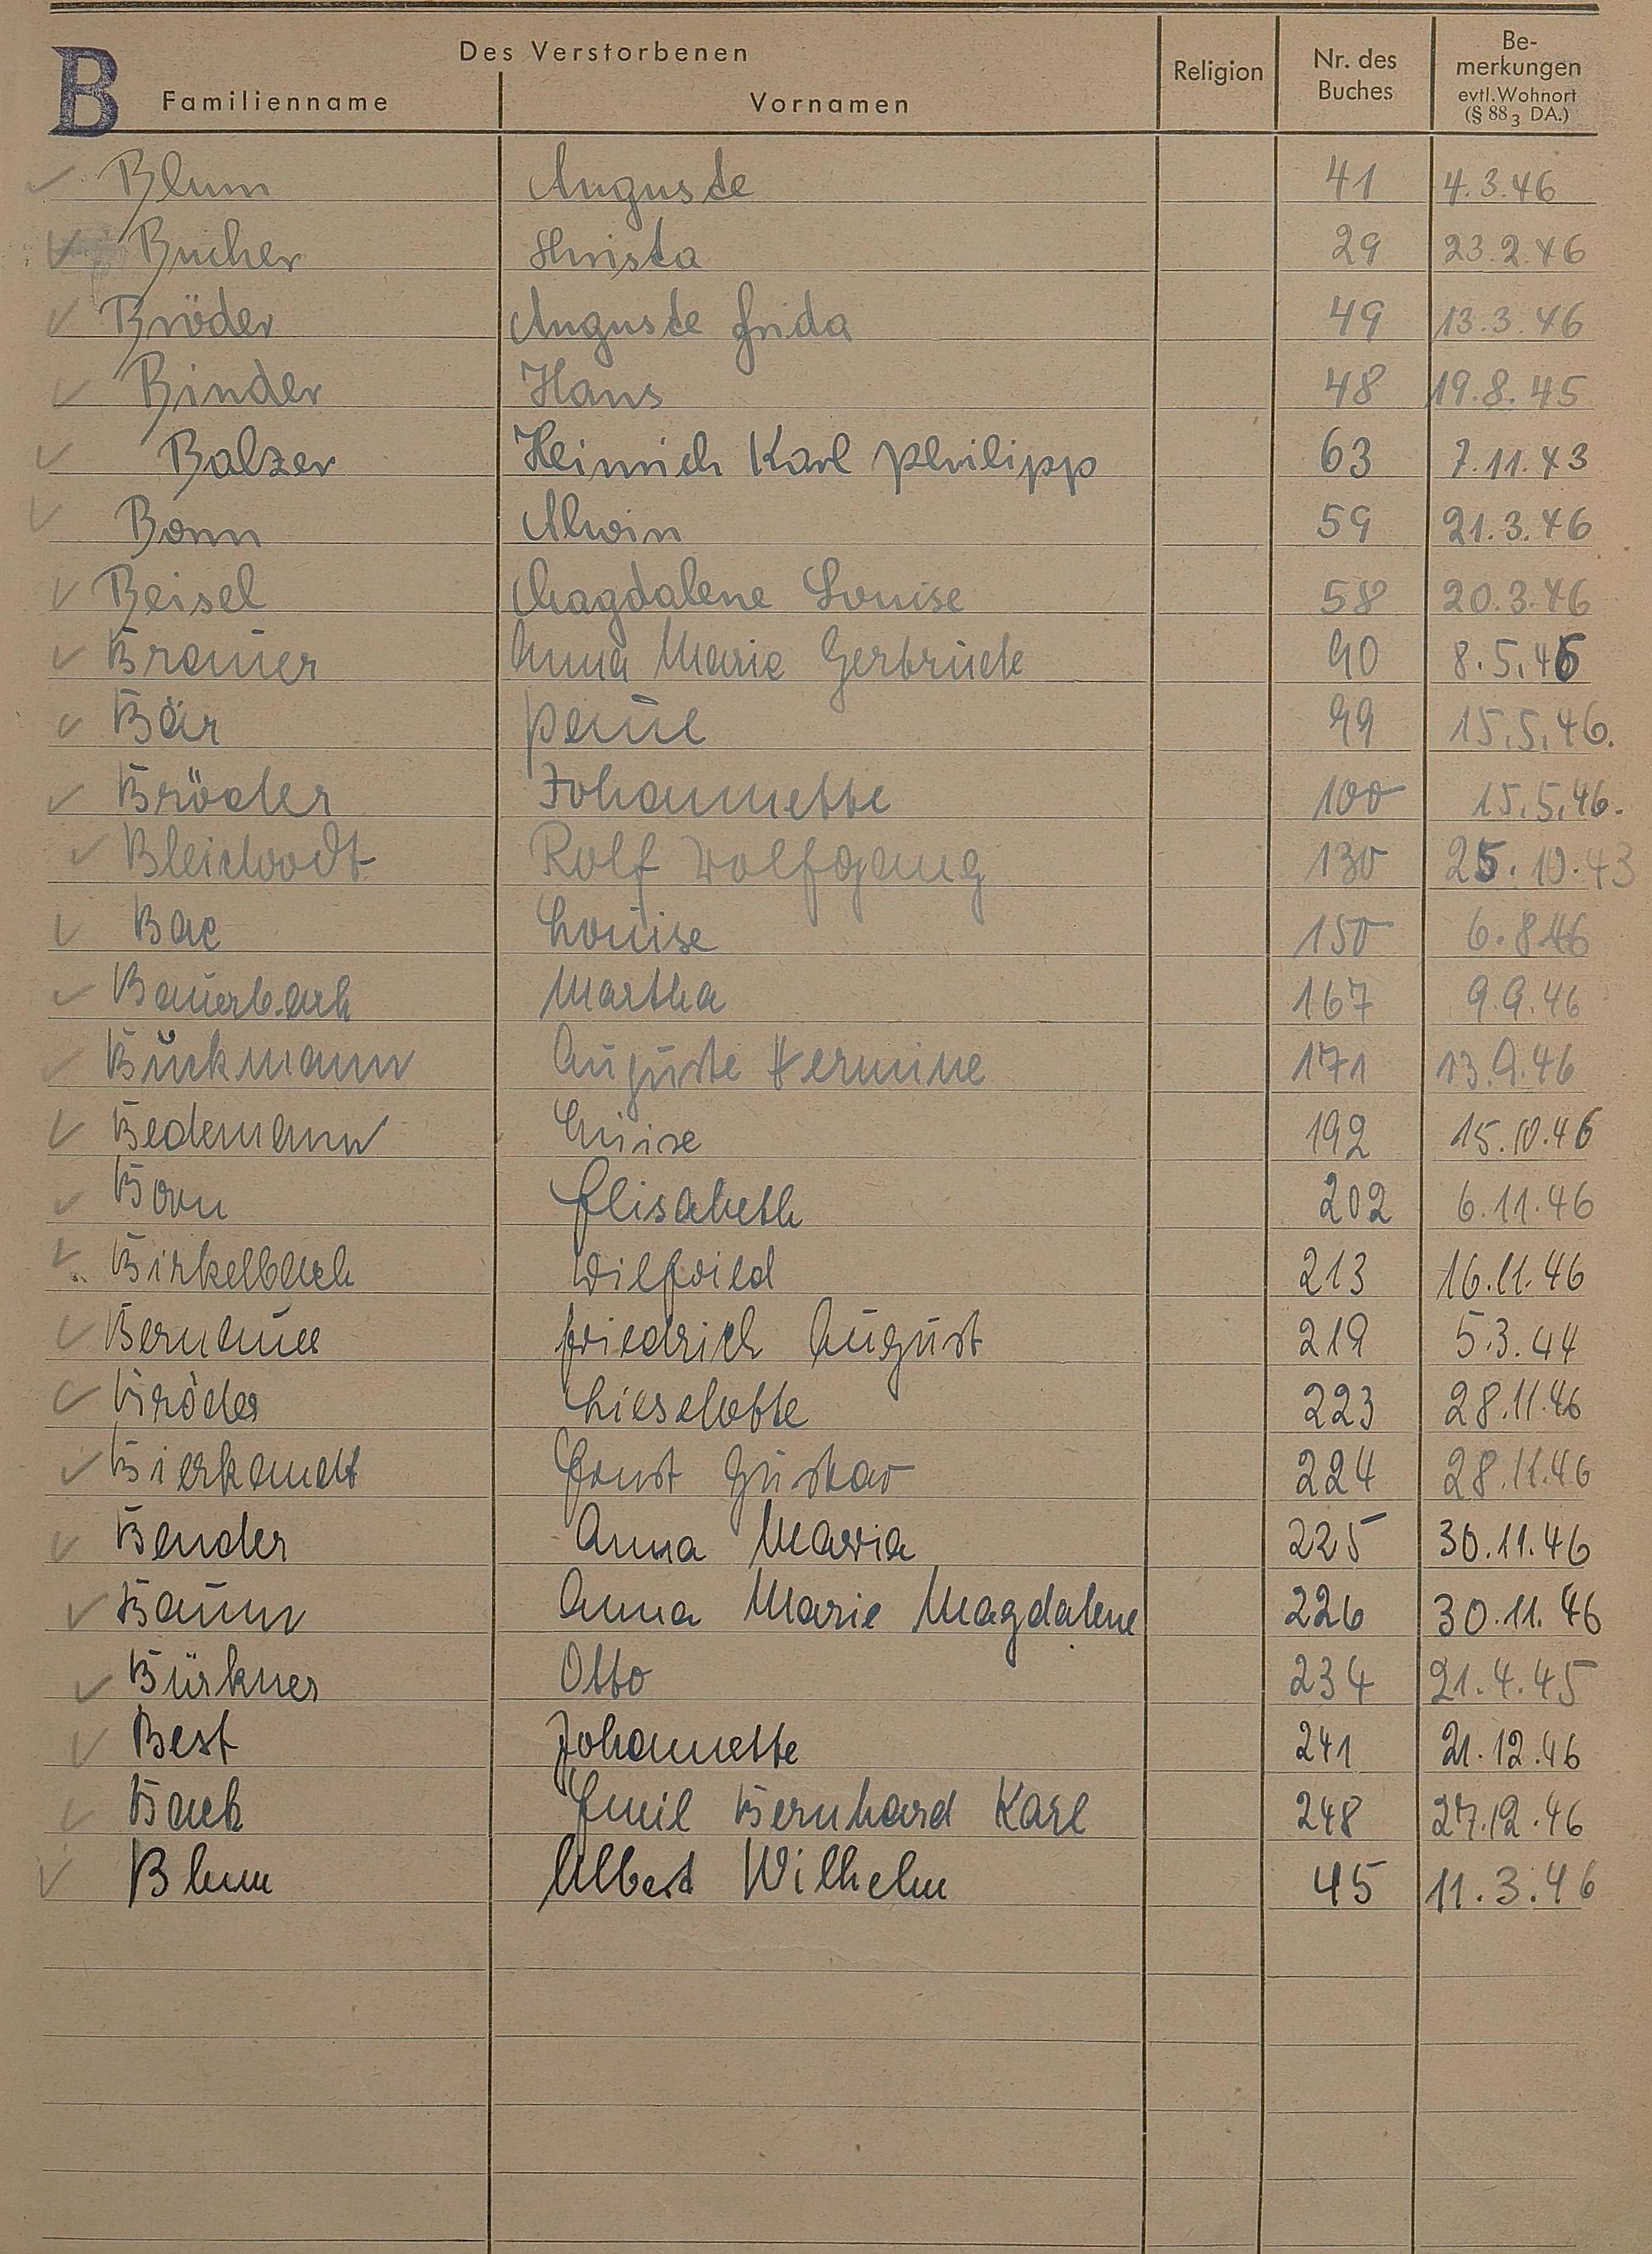 B
Des Verstorbenen
Familienname Vornamen Religion Nr. des Buches Bemerkungen evtl. Wohnort (§ 88 3 DA.)
Blum Auguste 41 4.3.46
Bucher Christa 29 23.2.46
Bröder Auguste Frida 49 13.3.46
Binder Hans 48 19.8.45
Balzer Heinrich Karl Philipp 63 7.11.43
Bonn Alwin 59 21.3.46
Beisel Magdalene Louise 58 20.3.46
Brauer Anna Marie Gertrude 90 8.5.46
Bär Paul 99 15.5.46.
Bröder Johannette 100 15.5.46.
Rolf Wolfgang 130 25.10.43
Bac Louise 150 6.8.46
Bauerbach Martha 167 9.9.46
Auguste Hermine 171 13.9.46
Bedemann Luise 192 15.10.46
Born Elisabeth 202 6.11.46
Birkelbach Wilfried 213 16.11.46
Friedrich August 219 5.3.44
Bröder Lieselotte 223 28.11.46
Bierkandt Ernst Gustav 224 28.11.46
Bender Anna Maria 225 30.11.46
Baum Anna Marie Magdalene 226 30.11.46
Bürkner Otto 234 21.4.45
Best Johannette 241 21.12.46
Back Emil Bernhard Karl 248 27.12.46
Blum Albert Wilhelm 45 11.3.46